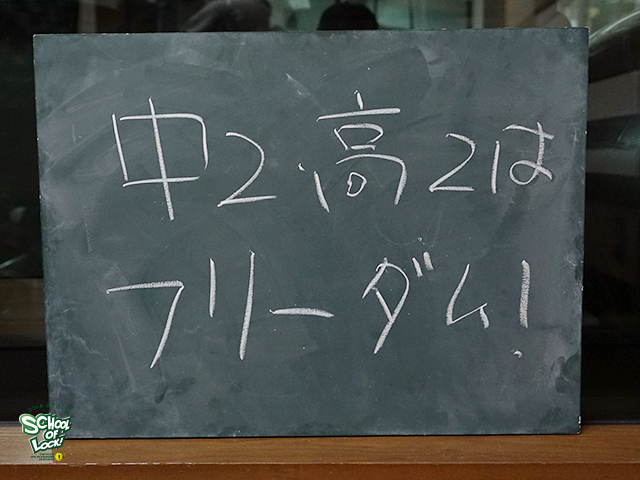 中2高2は
フリーダム!
SCHOOL
OF
LOCK!